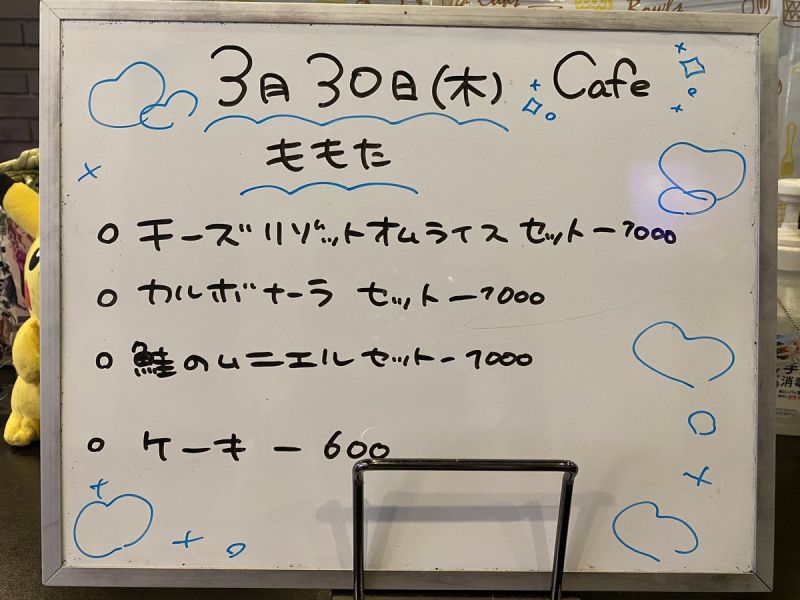 3月30日(木) Cafe
ももた
○ チーズリゾットオムライスセットー1000
○ カルボナーラ セットー1000
○ 鮭のムニエルセットー1000
○ ケーキ ー 600